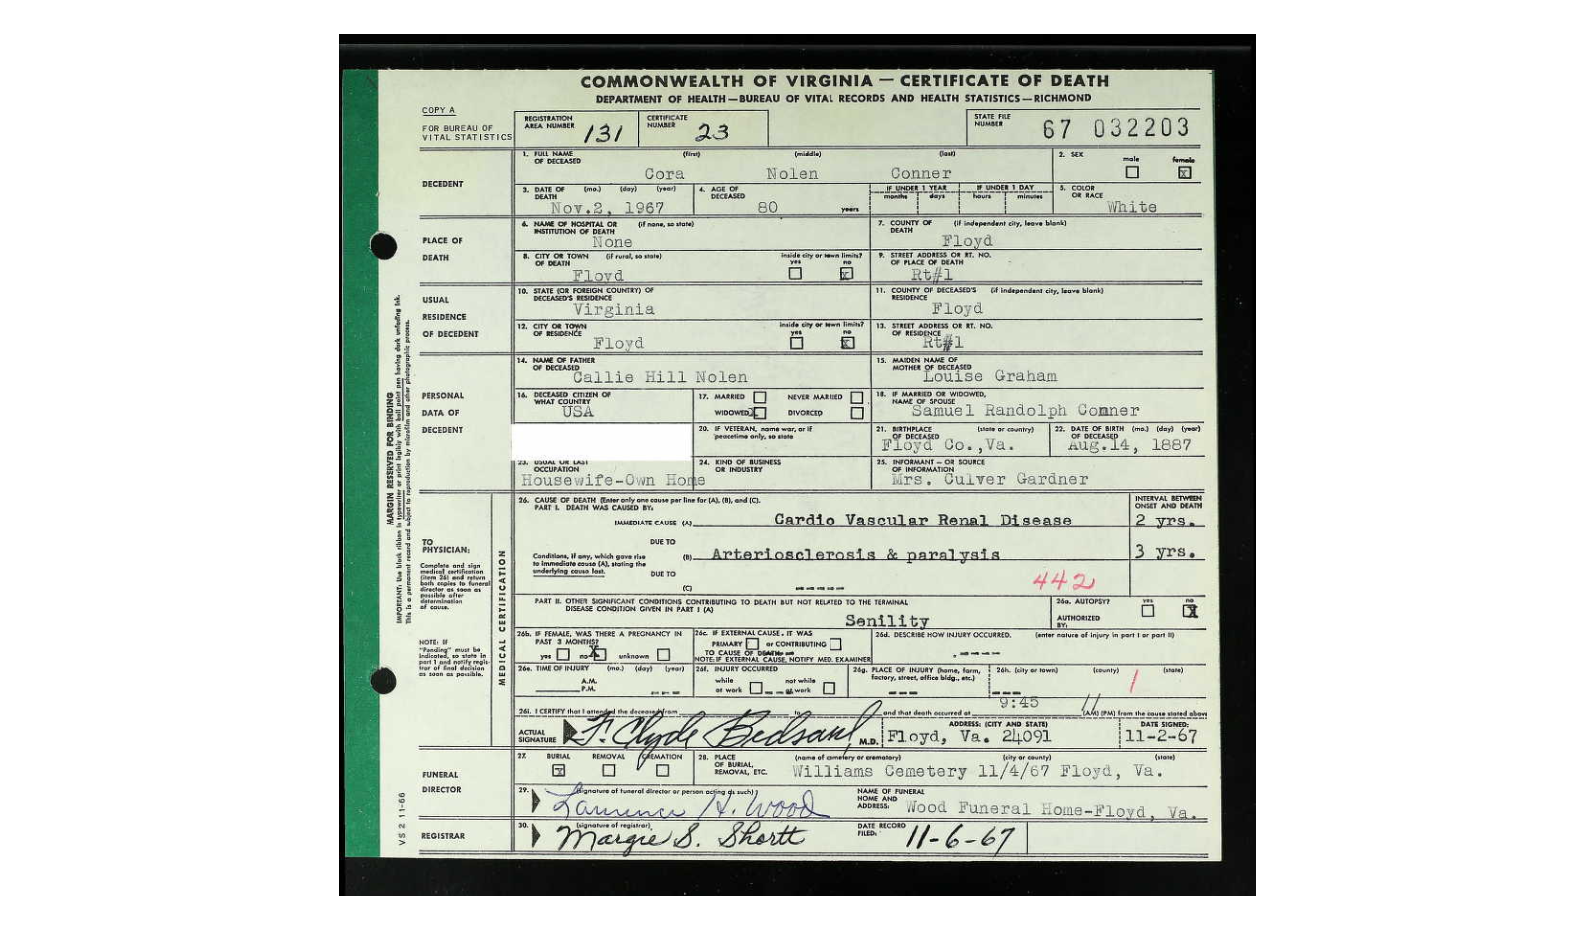 COMMONWEALTH OF VIRGINIA — CERTIFICATE OF DEATH
DEPARTMENT OF HEALTH—BUREAU OF VITAL RECORDS AND HEALTH STATISTICS—RICHMOND
COPY A
FOR BUREAU OF VITAL STATISTICS
REGISTRATION AREA NUMBER 131
CERTIFICATE NUMBER 23
STATE FILE NUMBER 67 032203
DECEDENT
1. FULL NAME OF DECEASED (first) (middle) (last)
Cora Nolen Conner
2. SEX male female X
3. DATE OF DEATH (mo.) (day) (year)
Nov.2, 1967
4. AGE OF DECEASED 80 years
IF UNDER 1 YEAR months days
IF UNDER 1 DAY hours minutes
5. COLOR OR RACE White
PLACE OF DEATH
6. NAME OF HOSPITAL OR INSTITUTION OF DEATH (if none, so state)
None
7. COUNTY OF DEATH (if independent city, leave blank)
Floyd
8. CITY OR TOWN OF DEATH (if rural, so state)
Floyd
inside city or town limits? yes no X
9. STREET ADDRESS OR RT. NO. OF PLACE OF DEATH
Rt#1
USUAL RESIDENCE OF DECEDENT
10. STATE (OR FOREIGN COUNTRY) OF DECEASED'S RESIDENCE
Virginia
11. COUNTY OF DECEASED'S RESIDENCE (if independent city, leave blank)
Floyd
12. CITY OR TOWN OF RESIDENCE
Floyd
inside city or town limits? yes no X
13. STREET ADDRESS OR RT. NO. OF RESIDENCE
Rt#1
PERSONAL DATA OF DECEDENT
14. NAME OF FATHER OF DECEASED
Callie Hill Nolen
15. MAIDEN NAME OF MOTHER OF DECEASED
Louise Graham
16. DECEASED CITIZEN OF WHAT COUNTRY
USA
17. MARRIED NEVER MARRIED
WIDOWED X DIVORCED
18. IF MARRIED OR WIDOWED, NAME OF SPOUSE
Samuel Randolph Conner
20. IF VETERAN, name war, or if peacetime only, so state
21. BIRTHPLACE OF DECEASED (state or country)
Floyd Co.,Va.
22. DATE OF BIRTH OF DECEASED (mo.) (day) (year)
Aug.14, 1887
23. USUAL OR LAST OCCUPATION
Housewife-Own Home
24. KIND OF BUSINESS OR INDUSTRY
25. INFORMANT — OR SOURCE OF INFORMATION
Mrs. Culver Gardner
MARGIN RESERVED FOR BINDING
MEDICAL CERTIFICATION
26. CAUSE OF DEATH (Enter only one cause per line for (A), (B), and (C).
PART I. DEATH WAS CAUSED BY:
INTERVAL BETWEEN ONSET AND DEATH
IMMEDIATE CAUSE (A) Cardio Vascular Renal Disease 2 yrs.
TO PHYSICIAN:
Complete and sign medical certification (item 26) and return both copies to funeral director as soon as possible after determination of cause.
DUE TO
Conditions, if any, which gave rise to immediate cause (A), stating the underlying cause last.
(B) Arteriosclerosis & paralysis 3 yrs.
DUE TO
(C) -----
442
PART II. OTHER SIGNIFICANT CONDITIONS CONTRIBUTING TO DEATH BUT NOT RELATED TO THE TERMINAL DISEASE CONDITION GIVEN IN PART I (A)
Senility
26a. AUTOPSY? yes no X
AUTHORIZED BY:
NOTE: IF "Pending" must be indicated, so state in part 1 and notify registrar of final decision as soon as possible.
26b. IF FEMALE, WAS THERE A PREGNANCY IN PAST 3 MONTHS?
yes no X unknown
26c. IF EXTERNAL CAUSE, IT WAS
PRIMARY or CONTRIBUTING
TO CAUSE OF DEATH
NOTE: IF EXTERNAL CAUSE, NOTIFY MED. EXAMINER
26d. DESCRIBE HOW INJURY OCCURRED. (enter nature of injury in part I or part II)
26e. TIME OF INJURY (mo.) (day) (year)
A.M.
P.M.
26f. INJURY OCCURRED
while at work not while at work
26g. PLACE OF INJURY (home, farm, factory, street, office bldg., etc.)
26h. (city or town) (county) (state)
1
26i. I CERTIFY that I attended the deceased from to and that death occurred at 9:45 (AM) (PM) from the cause stated above
ACTUAL SIGNATURE F. Clyde Bedsaul M.D.
ADDRESS: (CITY AND STATE)
Floyd, Va. 24091
DATE SIGNED:
11-2-67
FUNERAL DIRECTOR
27. BURIAL X REMOVAL CREMATION
28. PLACE OF BURIAL, REMOVAL, ETC. (name of cemetery or crematory) (city or county) (state)
Williams Cemetery 11/4/67 Floyd, Va.
29. (signature of funeral director or person acting as such)
Lawrence H. Wood
NAME OF FUNERAL HOME AND ADDRESS: Wood Funeral Home-Floyd, Va.
REGISTRAR
30. (signature of registrar)
Margie S. Shortt
DATE RECORD FILED: 11-6-67
VS 2 11-66